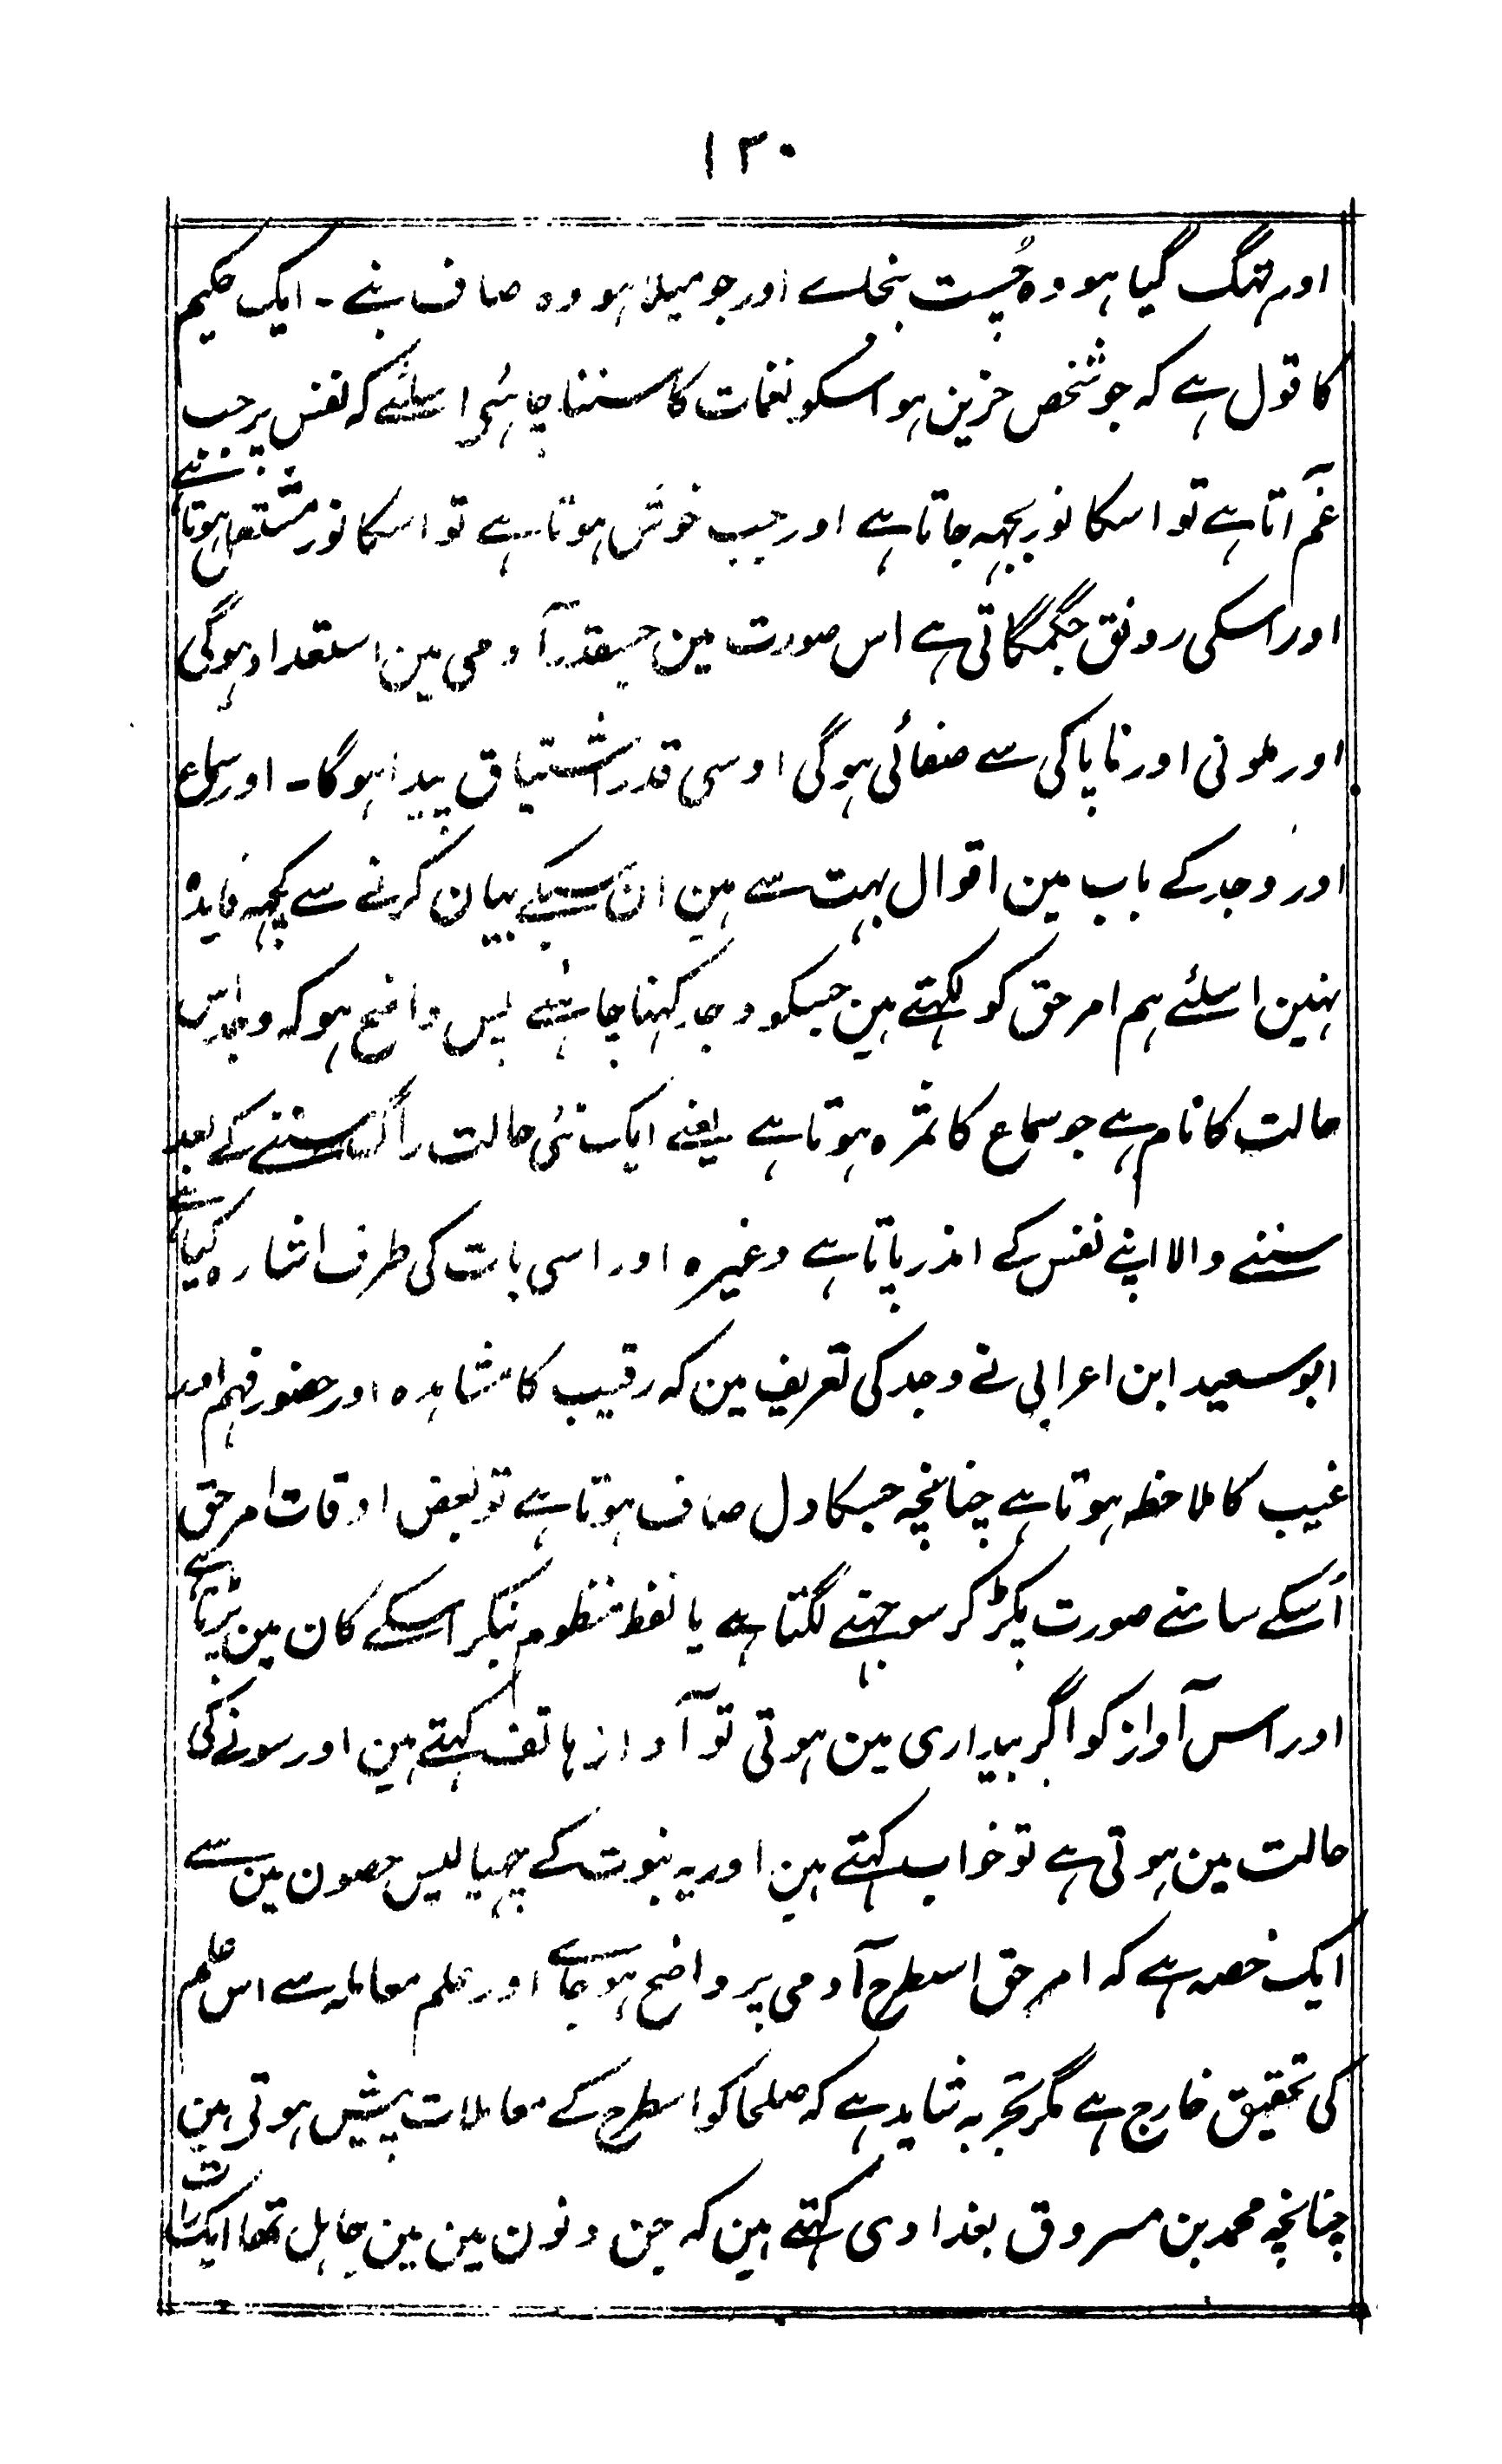 ۱۳۰
اور تہک گیا ہو وہ چُست بنجاے اور جو میلا ہو وہ صاف بنے ۔ ایک حکیم
کا قول ہے کہ جو شخص حزین ہو اسکو نغمات کا سننا چاہئی اسلئے کہ نفس پر جب
غم آتا ہے تو اسکا نور بجہہ جاتا ہے اور جب خوش ہوتا ہے تو اسکا نور مشتعل ہوتا ہے
اور اسکی رونق جگمگاتی ہے اس صورت مین جسقدر آدمی مین استعداد ہوگی
اور ملونی اور ناپاکی سے صفائی ہوگی اوسی قدر اشتیاق پیدا ہوگا ۔ اور سماع
اور وجد کے باب مین اقوال بہت سے ہین ان سبکے بیان کرنے سے کچہہ فایدہ
نہین اسلئے ہم امر حق کو لکہتے ہین جسکو وجد کہنا چاہئے پس واضح ہو کہ وجد اس
حالت کا نام ہے جو سماع کا ثمرہ ہوتا ہے یعنے ایک نئی حالت راگ سننے کے بعد
سننے والا اپنے نفس کے اندر پاتا ہے وغیرہ اور اسی بات کی طرف اشارہ کیا ہے
ابو سعید ابن اعرابی نے وجد کی تعریف مین کہ رقیب کا مشاہدہ اور حضور فہم اور
غیب کا ملاحظہ ہوتا ہے چنانچہ جسکا دل صاف ہوتا ہے تو بعض اوقات امر حق
اُسکے سامنے صورت پکڑ کر سوجہنے لگتا ہے یا لفظ منظوم بنکر اسکے کان مین پڑتا ہے
اور اس آواز کو اگر بیداری مین ہوتی تو آواز ہاتف کہتے ہین اور سونے کی
حالت مین ہوتی ہے تو خواب کہتے ہین اور یہ نبوت کے چہیالیس حصون مین سے
ایک حصہ ہے کہ امر حق اسطرح آدمی پر واضح ہو جاے اور علم معاملہ سے اس علم
کی تحقیق خارج ہے مگر تجربہ شاہد ہے کہ صلحا کو اسطرح کے معاملات پیش ہوتی ہین
چنانچہ محمد بن مسروق بغدادی کہتے ہین کہ جن دنون مین مین جاہل تھا ایک رات